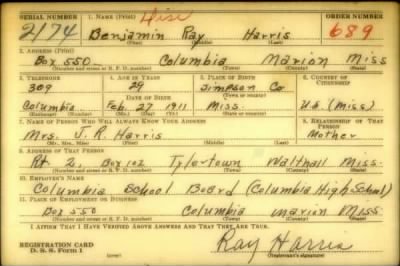 SERIAL NUMBER 1. NAME (Print) ORDER NUMBER
2174 Benjamin Ray Harris 689
(First) (Middle) (Last)
2. ADDRESS (Print)
Box 550 Columbia Marion Miss
(Number and street or R. F. D. number) (Town) (County) (State)
3. TELEPHONE 4. AGE IN YEARS 5. PLACE OF BIRTH 6. COUNTRY OF CITIZENSHIP
309 29 Simpson Co
DATE OF BIRTH
Columbia Feb. 27 1911 Miss. U.S. (Miss)
(Exchange) (Number) (Mo.) (Day) (Yr.) (State or country)
7. NAME OF PERSON WHO WILL ALWAYS KNOW YOUR ADDRESS 8. RELATIONSHIP OF THAT PERSON
Mrs. J. R. Harris Mother
(Mr., Mrs., Miss) (First) (Middle) (Last)
9. ADDRESS OF THAT PERSON
Rt 2, Box 102 Tylertown Walthall Miss.
(Number and street or R. F. D. number) (Town) (County) (State)
10. EMPLOYER'S NAME
Columbia School Board (Columbia High School)
11. PLACE OF EMPLOYMENT OR BUSINESS
Box 550 Columbia Marion Miss.
(Number and street or R. F. D. number) (Town) (County) (State)
I AFFIRM THAT I HAVE VERIFIED ABOVE ANSWERS AND THAT THEY ARE TRUE.
REGISTRATION CARD
D. S. S. Form 1 Ray Harris
(Registrant's signature)